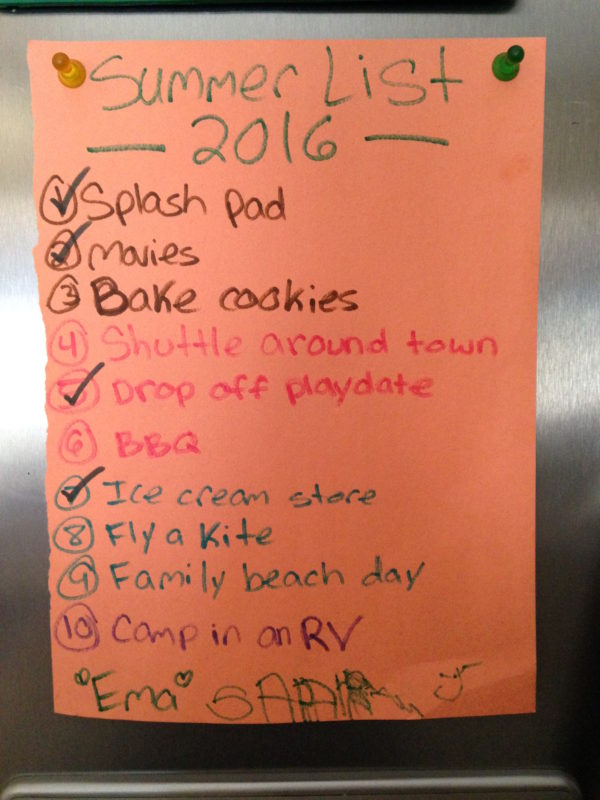 Summer List
— 2016 —
1 Splash Pad
2 Movies
3 Bake cookies
4 Shuttle around town
5 Drop off playdate
6 BBQ
7 Ice cream store
8 Fly a Kite
9 Family beach day
10 Camp in an RV
"Ema"